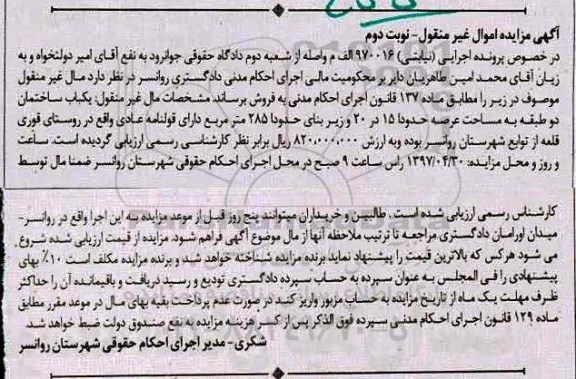 آگهی مزایده اموال غیر منقول - نوبت دوم
در خصوص پرونده اجرایی (نیابتی) ۹۷۰۰۱۶ الف م واصله از شعبه دوم دادگاه حقوقی جوانرود به نفع آقای امیر دولتخواه و به
زیان آقای محمد امین طاهریان دایر بر محکومیت مالی اجرای احکام مدنی دادگستری روانسر در نظر دارد مال غیر منقول
موصوف در زیر را مطابق ماده ۱۳۷ قانون اجرای احکام مدنی به فروش برساند. مشخصات مال غیر منقول: یکباب ساختمان
دو طبقه به مساحت عرصه حدودا ۱۵ در ۲۰ و زیر بنای حدودا ۲۸۵ متر مربع دارای قولنامه عادی واقع در روستای قوری
قلعه از توابع شهرستان روانسر بوده وبه ارزش ۸۲۰,۰۰۰,۰۰۰ ریال برابر نظر کارشناسی رسمی ارزیابی گردیده است. ساعت
و روز و محل مزایده: ۱۳۹۷/۰۴/۳۰ راس ساعت ۹ صبح در محل اجرای احکام حقوقی شهرستان روانسر ضمنا مال توسط
کارشناس رسمی ارزیابی شده است . طالبین و خریداران میتوانند پنج روز قبل از موعد مزایده به این اجرا واقع در روانسر-
میدان اورامان دادگستری مراجعه تا ترتیب ملاحظه آنها از مال موضوع آگهی فراهم شود. مزایده از قیمت ارزیابی شده شروع
می شود هرکس که بالاترین قیمت را پیشنهاد نماید برنده مزایده شناخته خواهد شد و برنده مزایده مکلف است ۱۰٪ بهای
پیشنهادی را فی المجلس به عنوان سپرده به حساب سپرده دادگستری تودیع و رسید دریافت و باقیمانده آن را حداکثر
ظرف مهلت یک ماه از تاریخ مزایده به حساب مزبور واریز کنید در صورت عدم پرداخت بقیه بهای مال در موعد مقرر مطابق
ماده ۱۲۹ قانون اجرای احکام مدنی سپرده فوق الذکر پس از کسر هزینه مزایده به نفع صندوق دولت ضبط خواهد شد
شکری- مدیر اجرای احکام حقوقی شهرستان روانسر